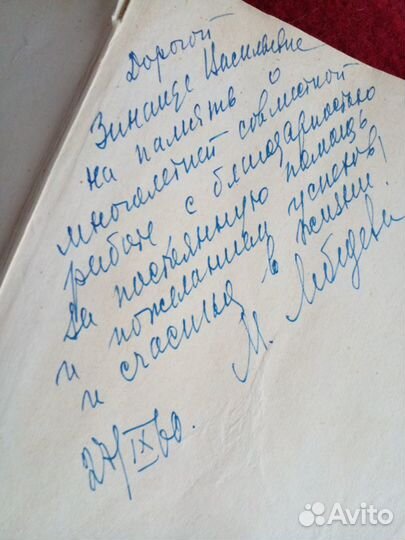 Дорогой
Зинаиде Васильевне
на память о
многолетней совместной
работе с благодарностью
за постоянную помощь
и пожеланием успехов,
и счастья в жизни.
М. Лебедева
27/IX 60.
Avito